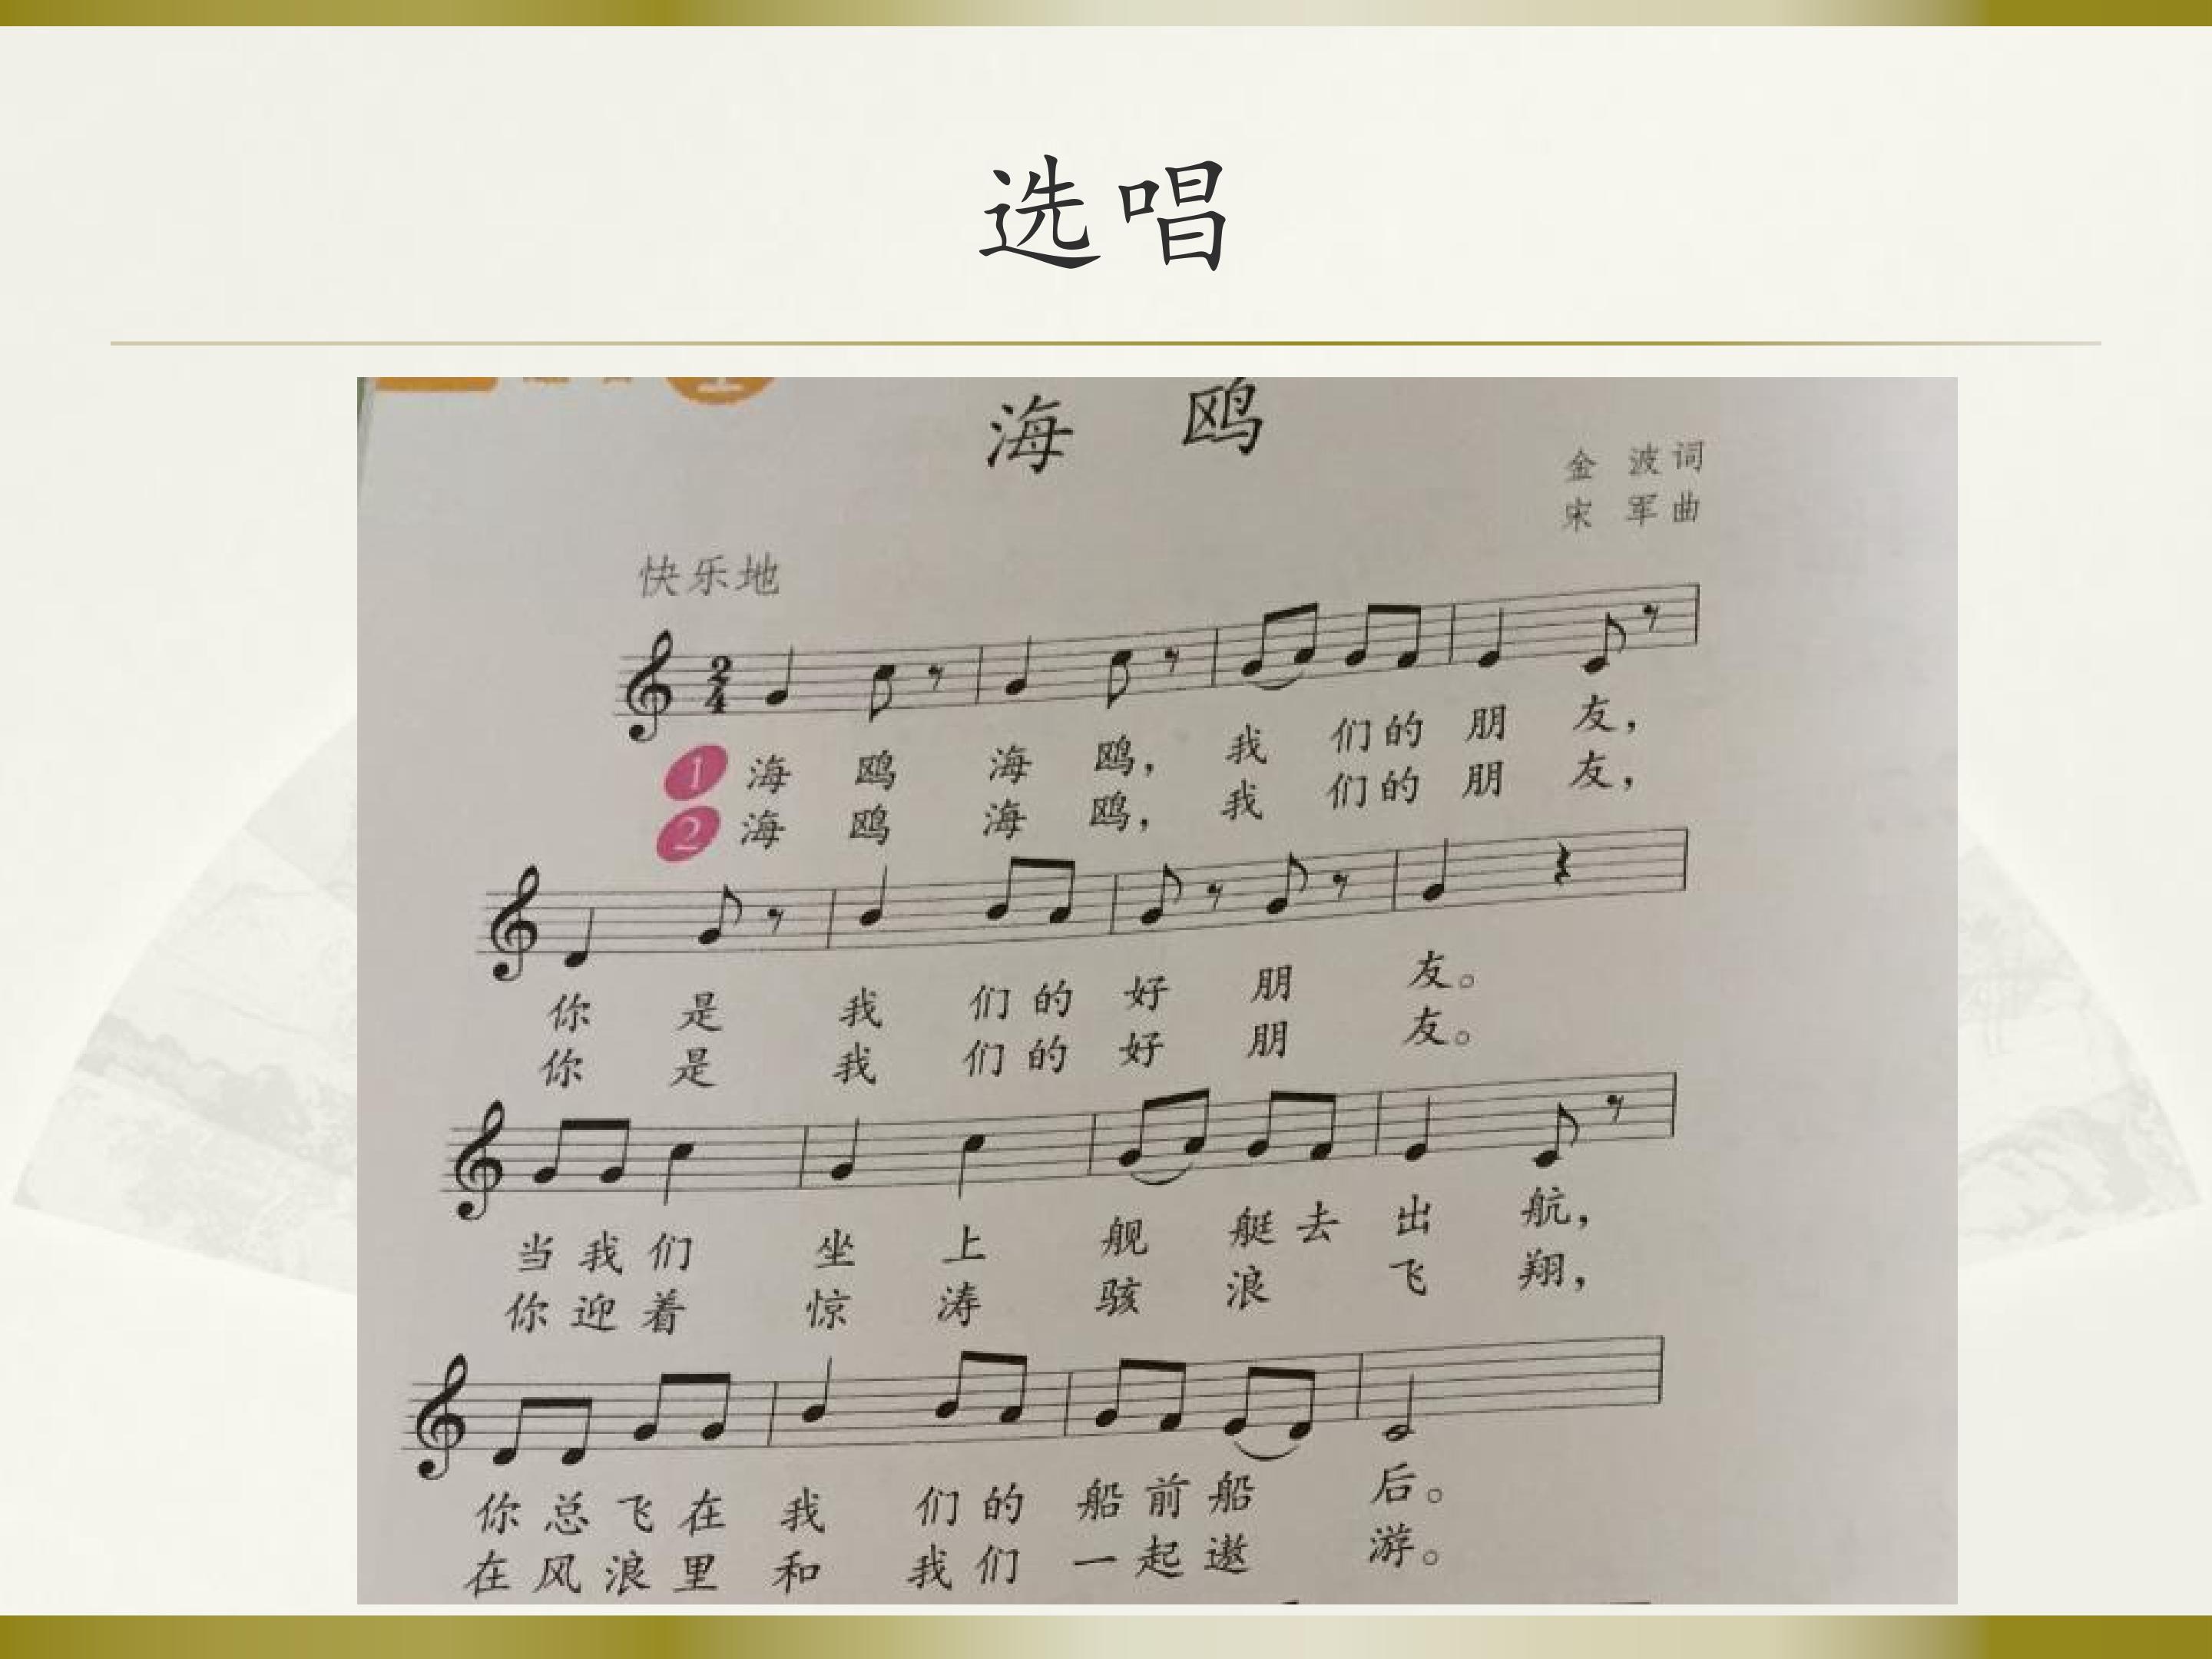 选唱
海 鸥
金 波词
宋 军曲
快乐地
2
4
1 海 鸥 海 鸥， 我 们的 朋 友，
2 海 鸥 海 鸥， 我 们的 朋 友，
你 是 我 们的 好 朋 友。
你 是 我 们的 好 朋 友。
当我们 坐 上 舰 艇去 出 航，
你迎着 惊 涛 骇 浪 飞 翔，
你总飞在 我 们的 船前船 后。
在风浪里 和 我们 一起遨 游。